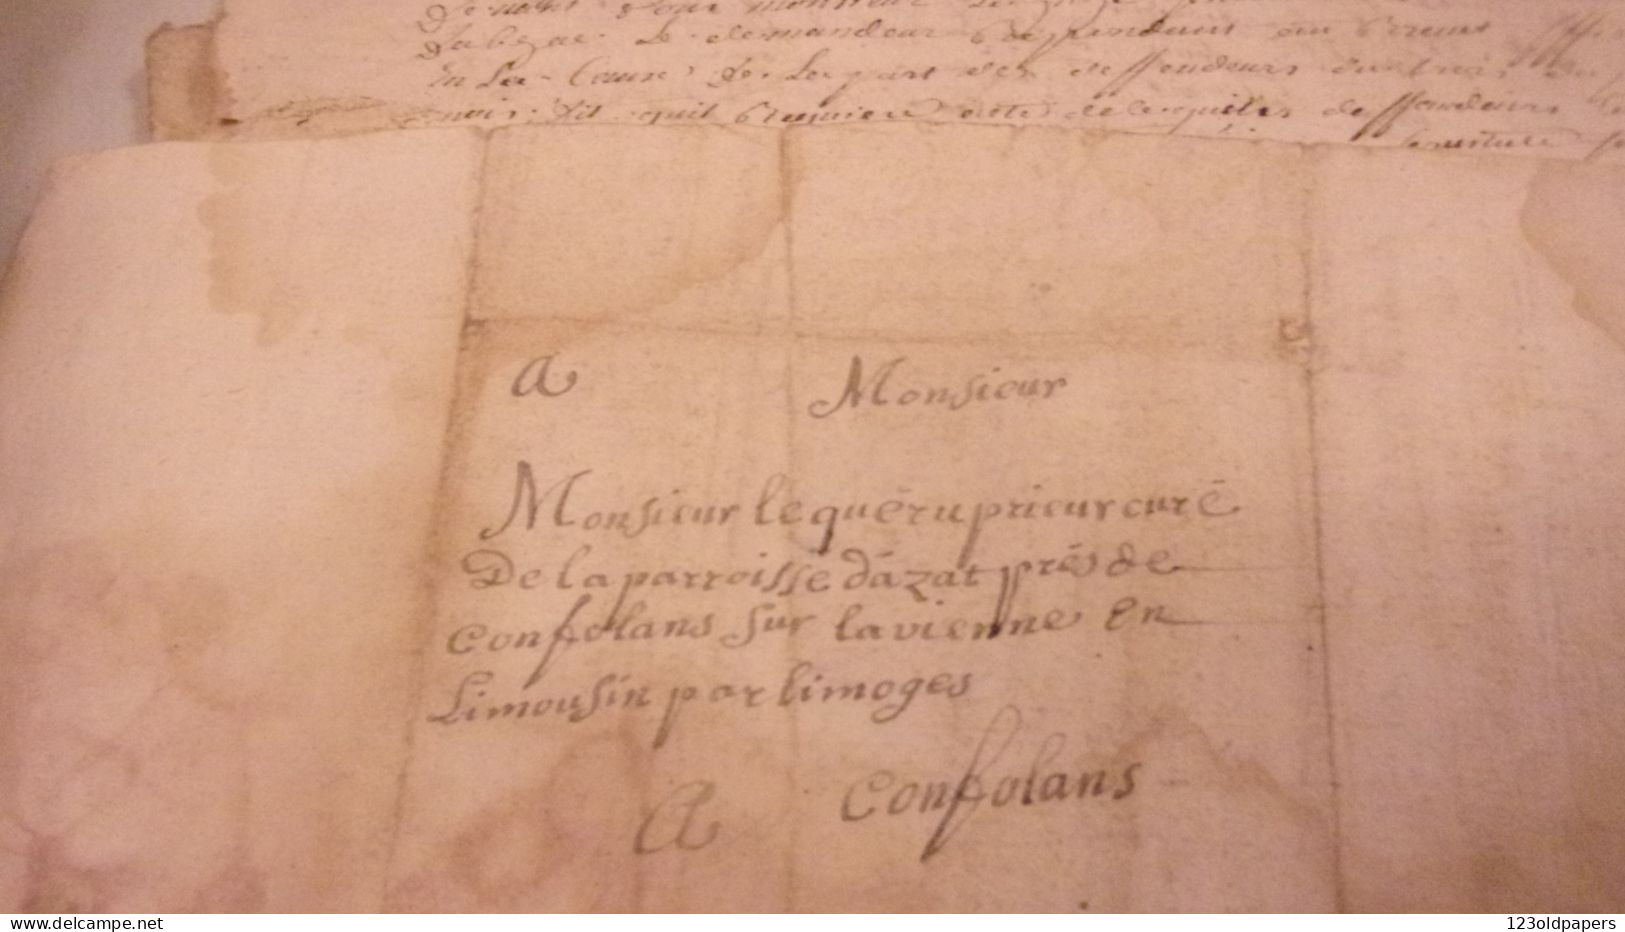 Labezac. Le demandeur
En La Cause De La part des deffendeurs
dit quil de lesquels deffendeurs
A Monsieur
Monsieur le quéru prieur curé
De la parroisse dázat prés de
confolans sur la vienne en
Limousin par limoges
A confolans
www.delcampe.net
123oldpapers